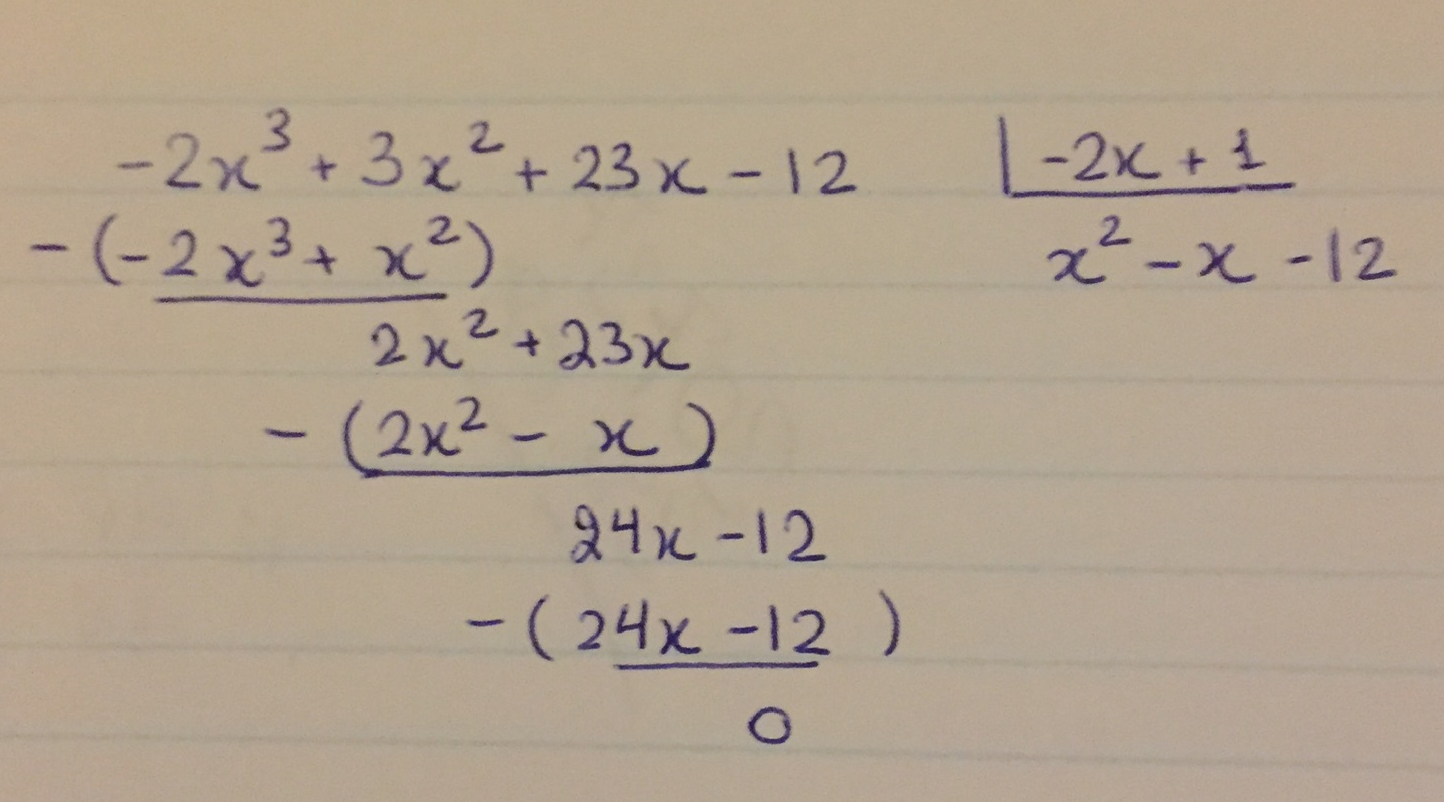 -2x³ + 3x² + 23x - 12 | -2x + 1
-(-2x³ + x²) x² - x - 12
2x² + 23x
- (2x² - x)
24x - 12
- (24x - 12)
0